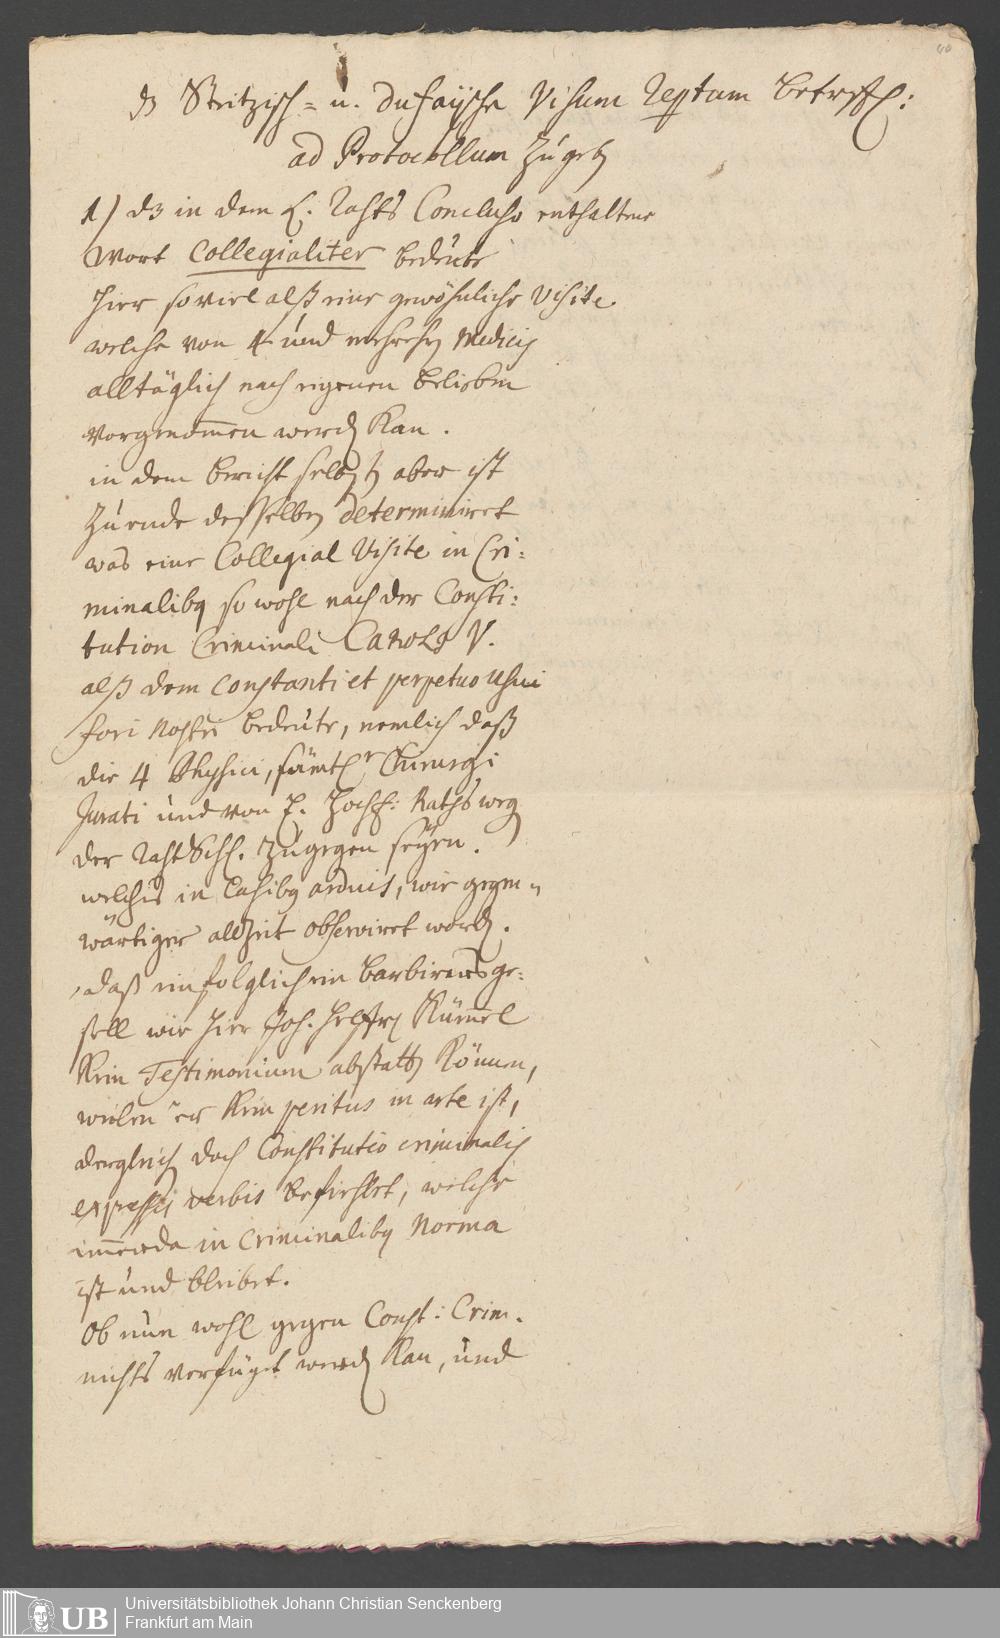 dz Stritzisch= u. Dufaÿsche Visum reptum betreffl:
ad Protocollum zu geb
1) dz in dem E. Rahts Concluso enthaltene
Wort Collegialiter bedeute
hier so viel alß eine gewöhnliche Visite
welche von 4 und mehreren Medicis
alltäglich nach eigenen belieben
vorgenommen werd kan.
in dem bericht selbst aber ist
zu ende desselben determiniret
was eine Collegial Visite in Cri:
minalibq so wohl nach der Consti:
tution Criminali Caroli V.
alß dem constanti et perpetuo usui
fori nostri bedeute, nemlich daß
die 4 Physici, sämtl Chirurgi
Jurati und von E. HochE: Raths weg
der RahtSchl. zugegen seyen.
welches in Casibq arduis, wie gegen=
wärtiger allzeit observiret word.
daß einfolglich ein barbirers ge:
sell wie hier Joh. Kümmel
kein Testimonium abstatt können,
weilen er kein peritus in arte ist,
dergleich doch Constitutio criminalis
expressis verbis befiehlet, welche
immerda in Criminalibq Norma
ist und bleibet.
Ob nun wohl gegen Const: Crim.
nichts verfüget werd kan, und
Universitätsbibliothek Johann Christian Senckenberg
Frankfurt am Main
UB